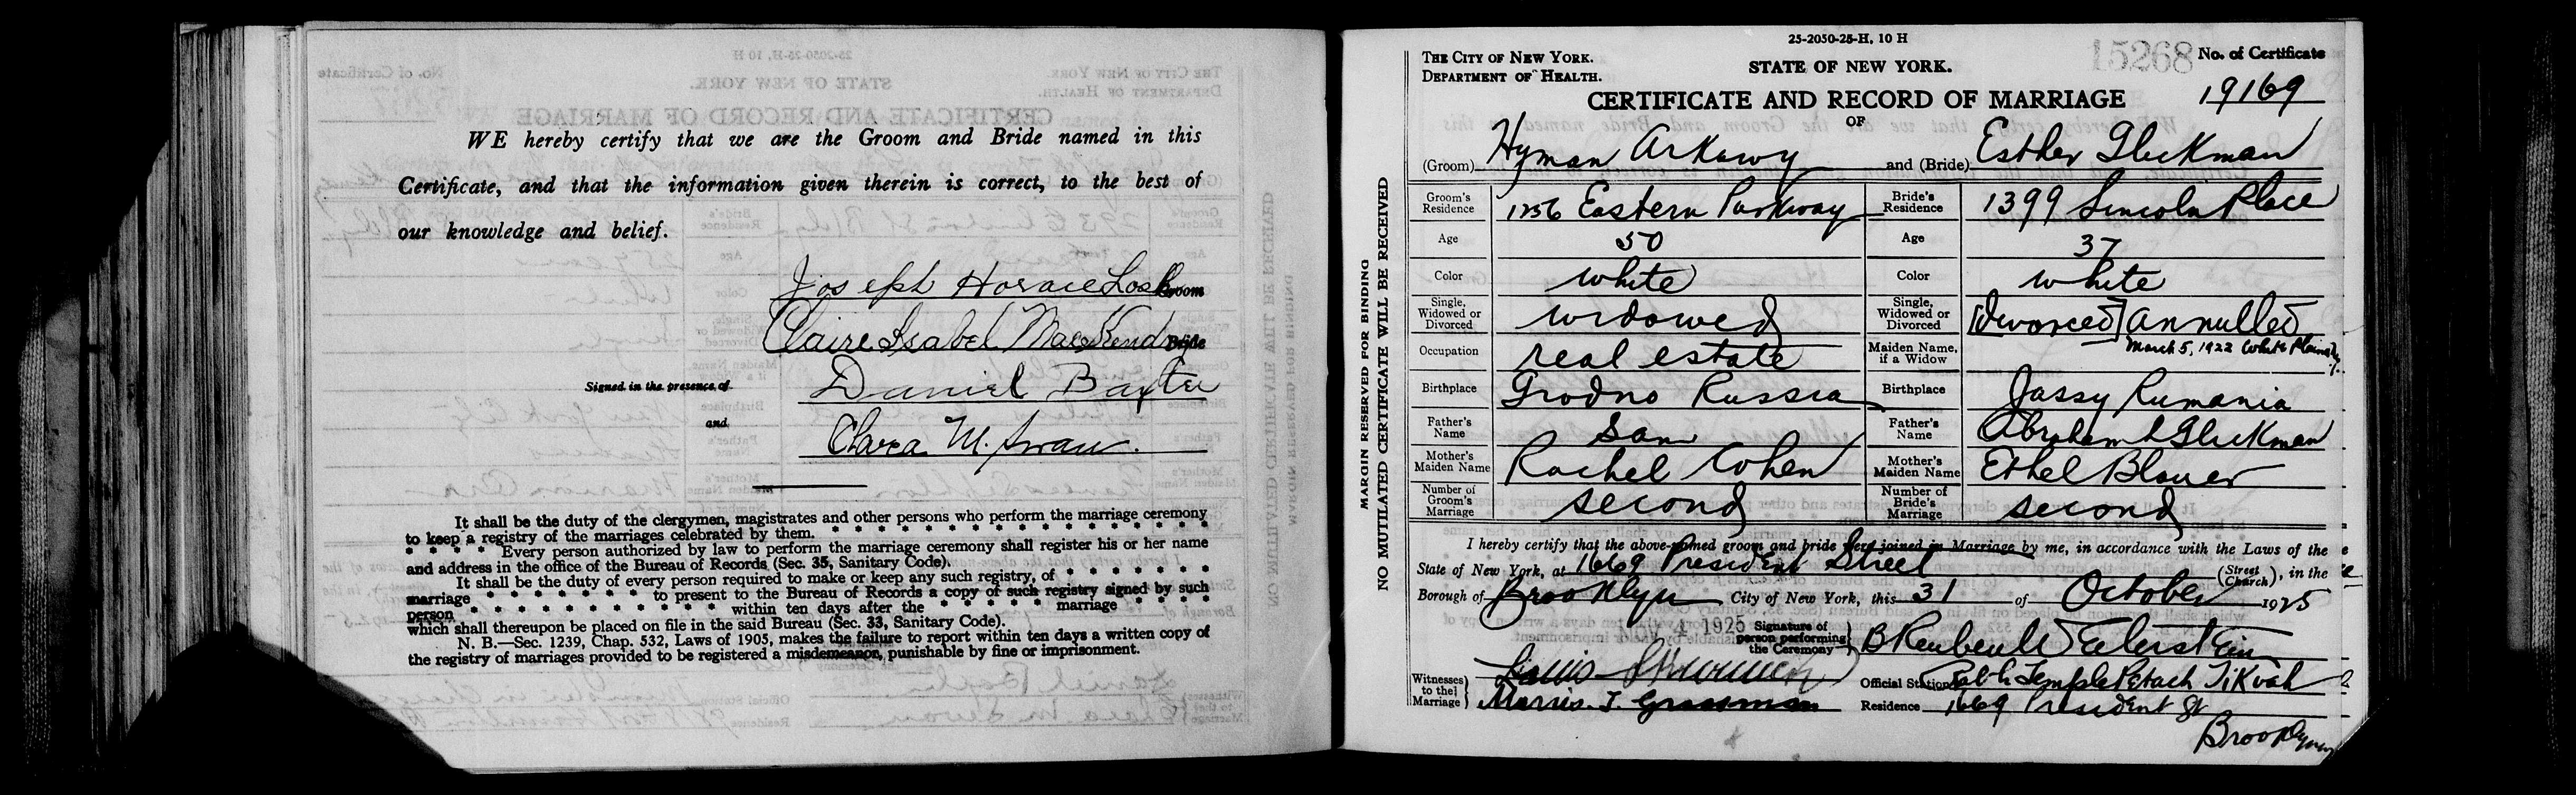 WE hereby certify that we are the Groom and Bride named in this
Certificate, and that the information given therein is correct, to the best of
our knowledge and belief.
Joseph Horace Groom
Claire Isabel Bride
Signed in the presence of Daniel Baxter
and Clara M. Swan.
It shall be the duty of the clergymen, magistrates and other persons who perform the marriage ceremony
to keep a registry of the marriages celebrated by them. * * * * * * * * * * * * * * *
* * * * Every person authorized by law to perform the marriage ceremony shall register his or her name
and address in the office of the Bureau of Records (Sec. 35, Sanitary Code).
It shall be the duty of every person required to make or keep any such registry, of * * * * * * *
marriage * * * * * * * to present to the Bureau of Records a copy of such registry signed by such
person * * * * * * * * * * within ten days after the * * * * * marriage * * * *
which shall thereupon be placed on file in the said Bureau (Sec. 33, Sanitary Code).
N. B.—Sec. 1239, Chap. 532, Laws of 1905, makes the failure to report within ten days a written copy of
the registry of marriages provided to be registered a misdemeanor, punishable by fine or imprisonment.
MARGIN RESERVED FOR BINDING
NO MUTILATED CERTIFICATE WILL BE RECEIVED
25-2050-25-H, 10 H
THE CITY OF NEW YORK.
DEPARTMENT OF HEALTH.
STATE OF NEW YORK.
15268 No. of Certificate
19169
CERTIFICATE AND RECORD OF MARRIAGE
OF
(Groom) Hyman Arkawy and (Bride) Esther Glickman
Groom's Residence 1256 Eastern Parkway Bride's Residence 1399 Lincoln Place
Age 50 Age 37
Color white Color white
Single, Widowed or Divorced widowed Single, Widowed or Divorced [divorced] annulled
March 5, 1922 White Plains N.Y.
Occupation real estate Maiden Name, if a Widow
Birthplace Grodno Russia Birthplace Jassy Rumania
Father's Name Sam Father's Name Abraham Glickman
Mother's Maiden Name Rachel Cohen Mother's Maiden Name Ethel Blauer
Number of Groom's Marriage second Number of Bride's Marriage second
I hereby certify that the above-named groom and bride were joined in Marriage by me, in accordance with the Laws of the
State of New York, at 1669 President Street (Street Church), in the
Borough of Brooklyn City of New York, this 31 of October 1925
4 1925 Signature of person performing the Ceremony B Reuben Weilerstein
Witnesses to the Marriage Louis
Official Station Rabbi Temple Petach Tikvah
Morris J. Grossman
Residence 1669 President St
Brooklyn